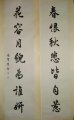 春恨秋悲皆自惹
花容月貌為誰妍